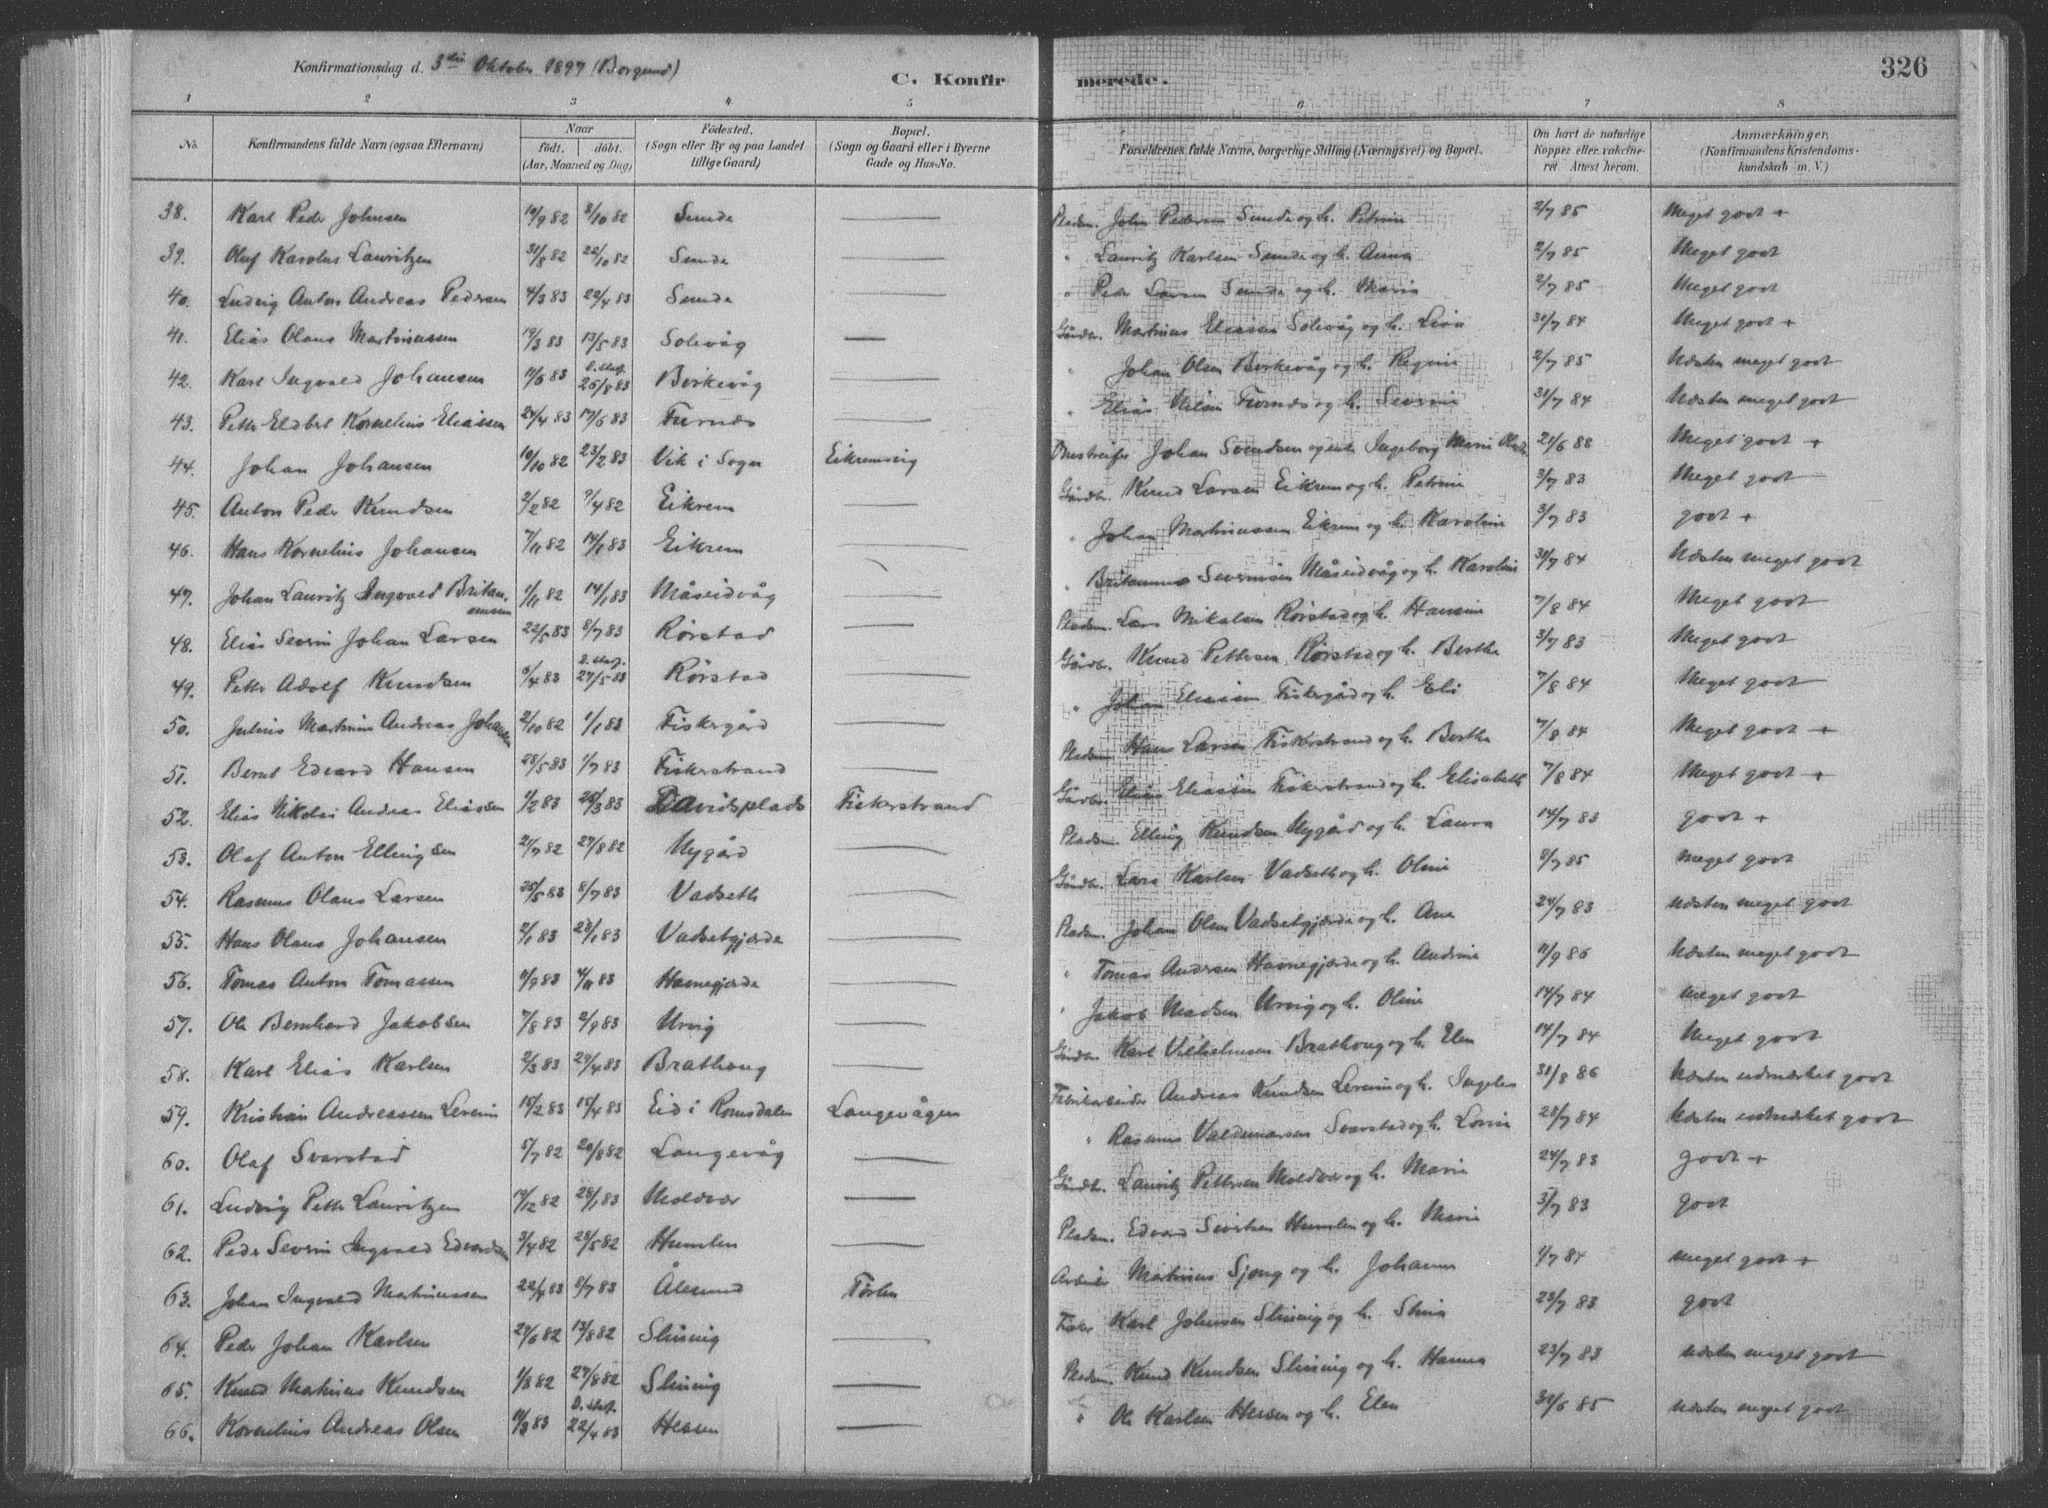 Konfirmationsdag d. 3die Oktober 1897 (Borgund)
C. Konfirmerede. 326
1 2 3 4 5 6 7 8
No. Konfirmandens fulde Navn (ogsaa Efternavn) Naar født. døbt. (Aar, Maaned og Dag) Fødested. (Sogn eller By og paa Landet tillige Gaard) Bopæl. (Sogn og Gaard eller i Byerne Gade og Hus-No. Forældrenes fulde Navne, borgerlige Stilling (Næringsvei) og Bopæl. Om havt de naturlige Kopper eller vakcineret Attest herom. Anmærkninger. (Konfirmandens Kristendomskundskab m. V.)
38. Karl Peder Johnsen 10/9 82 8/10 82 Sunde — Pladsm. John Pedersen Sunde og h. Petrine 2/7 85 Meget godt +
39. Oluf Karolus Lauritzen 31/8 82 22/10 82 Sunde — " Lauritz Karlsen Sunde og h. Anna 2/7 85 Meget godt
40. Ludvig Anton Andreas Pedersen 4/3 83 22/4 83 Sunde — " Peder Larsen Sunde og h. Marie 2/7 85 Meget godt
41. Elias Olaus Martinussen 19/3 83 13/5 83 Solevåg — Gårdbr. Martinus Eliassen Solevåg og h. Lisa 31/7 84 Meget godt +
42. Karl Ingvald Johansen 11/6 83 D. stadf. 26/8 83 Birkevåg — " Johan Olsen Birkevåg og h. Regine 2/7 85 Næsten meget godt
43. Petter Elibert Kornelius Eliassen 24/4 83 17/6 83 Furnes — " Elias Nilsen Furnes og h. Severine 31/7 84 Næsten meget godt
44. Johan Johansen 10/10 82 23/2 83 Vik i Sogn Eikremsvig Omstreifer Johan Svendsen og enke Ingeborg Marie Olsdtr 21/6 88 Meget godt +
45. Anton Peder Knudsen 2/2 82 9/4 82 Eikrem — Gårdbr. Knud Larsen Eikrem og h. Petrine 3/7 83 Meget godt
46. Hans Kornelius Johansen 7/11 82 14/1 83 Eikrem — " Johan Martinussen Eikrem og h. Karoline 3/7 83 godt +
47. Johan Lauritz Ingvald Britanniussen 1/11 82 14/1 83 Måseidvåg — " Britannus Severinsen Måseidvåg og h. Karoline 31/7 84 Næsten meget godt
48. Elias Severin Johan Larsen 22/5 83 8/7 83 Rørstad — Pladsm. Lars Nikolsen Rørstad og h. Hansine 7/8 84 Meget godt
49. Petter Adolf Knudsen 6/4 83 D. stadf. 27/5 83 Rørstad — Gårdbr. Knud Pettersen Rørstad og h. Berthe 3/7 83 Meget godt
50. Julius Martinius Andreas Johansen 2/10 82 1/1 83 Fiskergård — " Johan Eliassen Fiskergård og h. Eli 7/8 84 Meget godt
51. Bernt Edvard Hansen 28/5 83 1/7 83 Fiskerstrand — Pladsm. Hans Larsen Fiskerstrand og h. Berthe 7/8 84 Meget godt +
52. Elias Nikolai Andreas Eliassen 1/2 83 26/3 83 Davidsplads Fiskerstrand Gårdbr. Elias Eliassen Fiskerstrand og h. Elisabeth 7/8 84 Meget godt +
53. Olaf Anton Ellingsen 21/7 82 27/8 82 Nygård — Pladsm. Elling Knudsen Nygård og h. Laura 14/7 83 godt +
54. Rasmus Olaus Larsen 25/5 83 8/7 83 Vadseth — Gårdbr. Lars Karlsen Vadseth og h. Oline 8/7 85 meget godt
55. Hans Olaus Johansen 2/1 83 28/1 83 Vadsetgjerde — Pladsm. Johan Olsen Vadsetgjerde og h. Ane 24/7 83 Næsten meget godt
56. Tomas Anton Tomassen 11/9 83 4/11 83 Havnegjerde — " Tomas Andersen Havnegjerde og h. Andrine 11/9 86 Næsten meget godt
57. Ole Bernhard Jakobsen 7/8 83 2/9 83 Urvig — " Jakob Madsen Urvig og h. Oline 14/7 84 meget godt
58. Karl Elias Karlsen 2/3 83 29/4 83 Brathoug — Gårdbr. Karl Vilhelmsen Brathoug og h. Elen 14/7 84 Meget godt
59. Kristian Andreassen Lerein 15/2 83 15/4 83 Eid i Romsdalen Langevågen Fabrikarbeider Andreas Knudsen Lerein og h. Ingeleu 31/8 86 Næsten udmærket godt
60. Olaf Svarstad 5/7 82 20/8 82 Langevåg — " Rasmus Valdemarsen Svarstad og h. Lovise 28/7 84 Næsten udmærket godt
61. Ludvig Petter Lauritzen 17/12 82 28/1 83 Moldvær — Gårdbr. Lauritz Pettersen Moldvær og h. Marie 24/7 83 godt +
62. Peder Severin Ingvald Edvardsen 3/4 82 28/5 82 Humlen — Pladsm. Edvard Sivertsen Humlen og h. Marie 5/7 83 godt
63. Johan Ingvald Martinussen 22/4 83 8/7 83 Ålesund Tørlen Arbeider Martinus Sjong og h. Johanne 1/7 84 meget godt +
64. Peder Johan Karlsen 29/6 82 13/8 82 Slinning — Fisker Karl Johnsen Slinning og h. Stine 23/7 83 godt
65. Knud Martinus Knudsen 1/8 82 27/8 82 Slinning — Pladsm. Knud Knudsen Slinning og h. Hanna 23/7 83 næsten meget godt
66. Kornelius Andreas Olsen 11/3 83 D. stadf. 22/4 83 Hessen — " Ole Karlsen Hessen og h. Elen 30/6 85 næsten meget godt